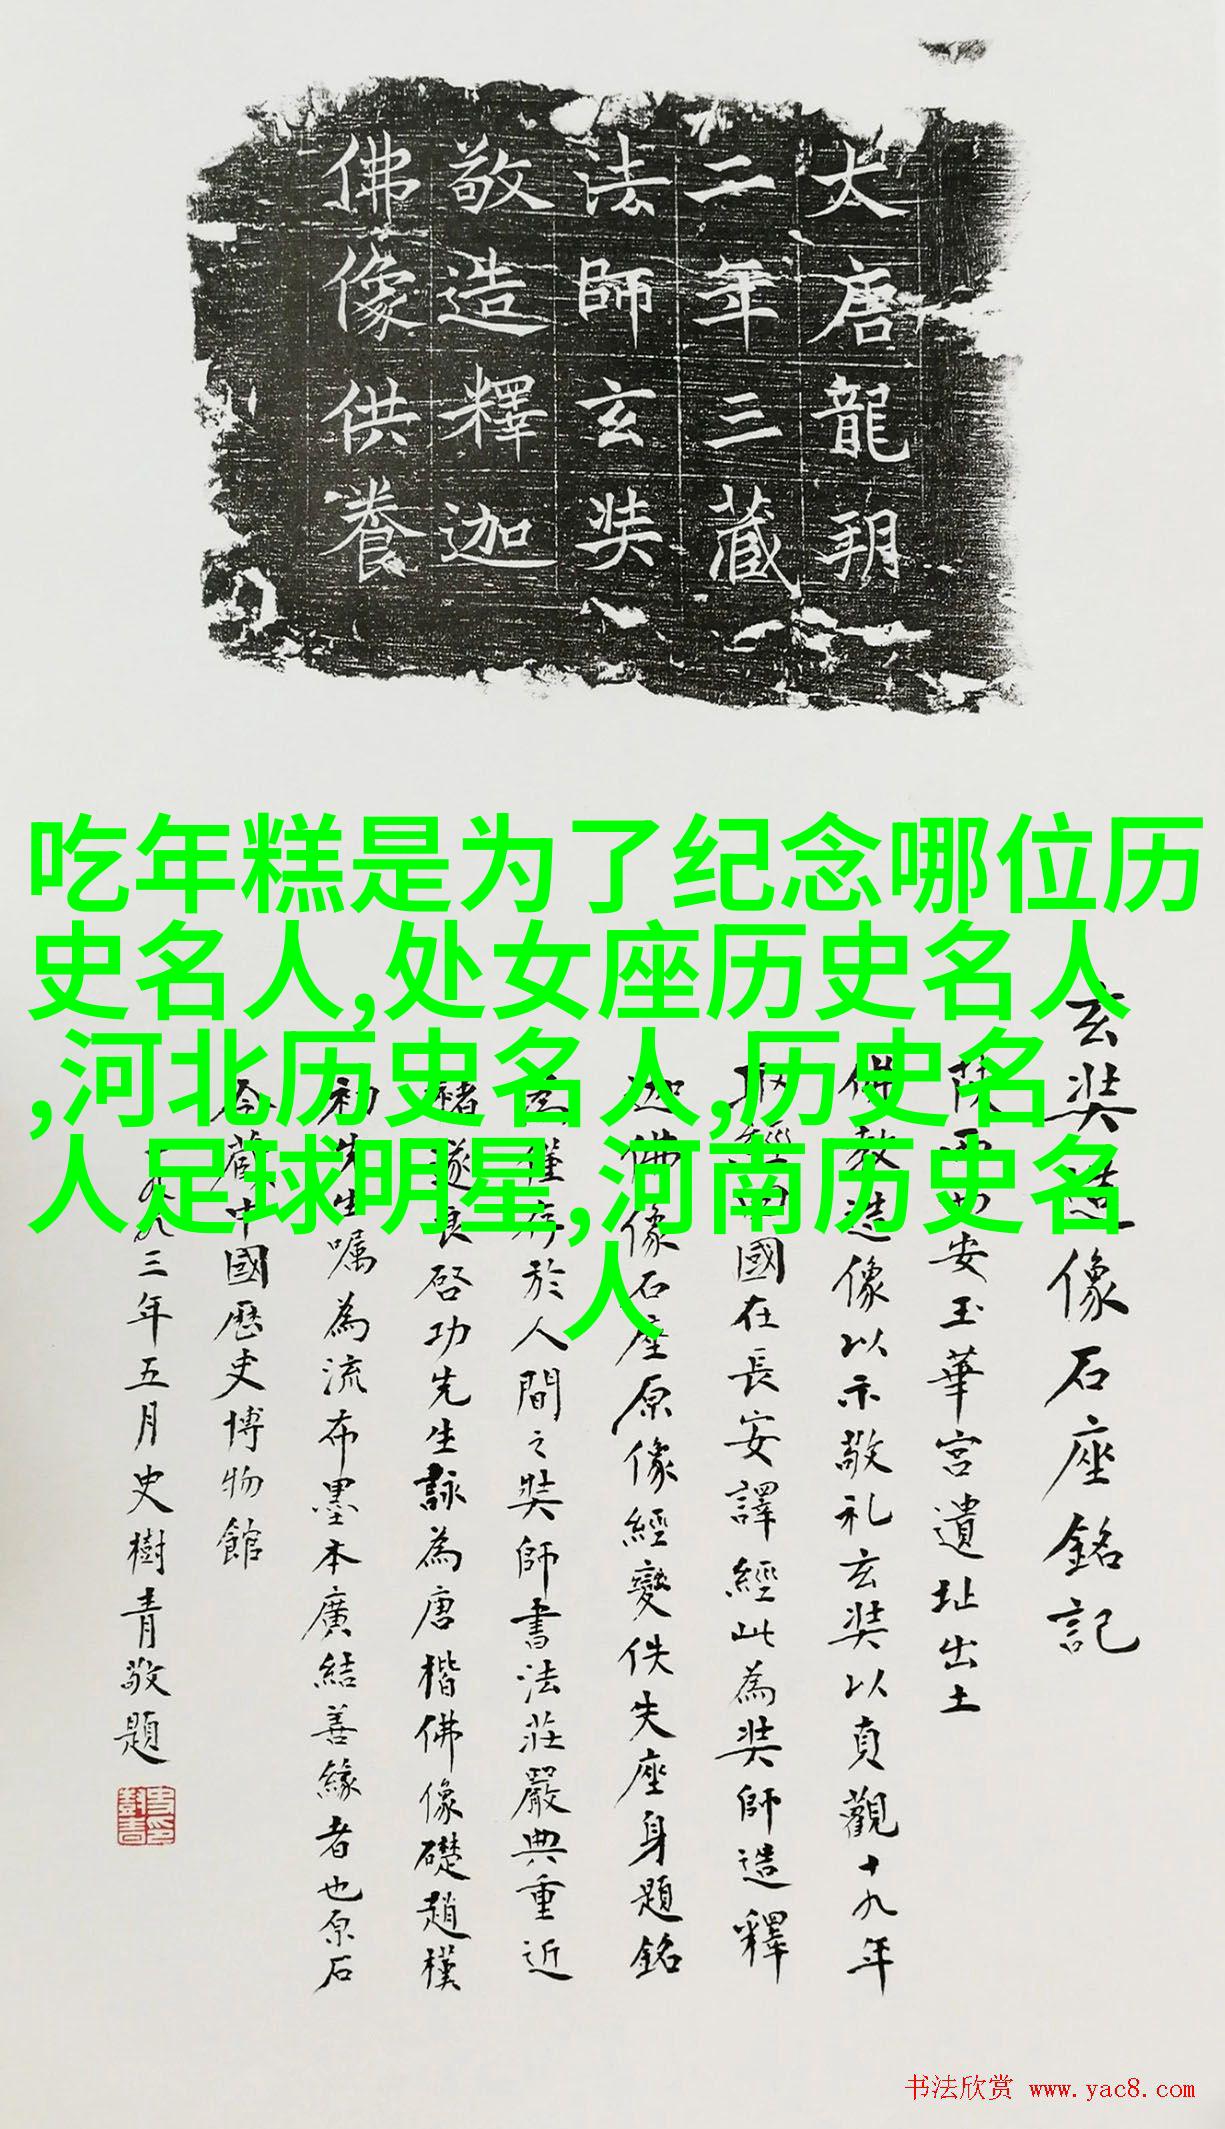 大唐龍朔
二年三藏
法師玄奘
敬造釋迦
佛像供養
吃年糕是为了纪念哪位历
史名人,处女座历史名人
,河北历史名人,历史名
人足球明星,河南历史名
人
玄奘造像石座銘記
陝西西安玉華宮遺址出土
教造像以示敬礼玄奘以貞觀十九年
取經回國在長安譯經此為奘師造釋
迦佛像石座原像經變佚失座身題銘
僅存於人間之奘師書法莊嚴典重近
褚遂良启功先生詠為唐楷佛像礎趙樸
初先生嘱為流布墨本廣結善緣者也原石
今藏中國歷史博物館
一九九三年五月史樹青敬題
书法欣赏 www.yac8.com